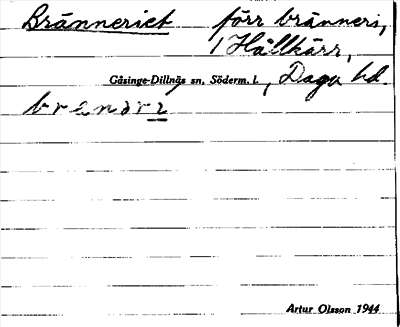 Bränneriet förr bränneri,
i Hållkärr,
Gåsinge-Dillnäs sn, Söderm. l., Daga hd.
Artur Olsson 1944